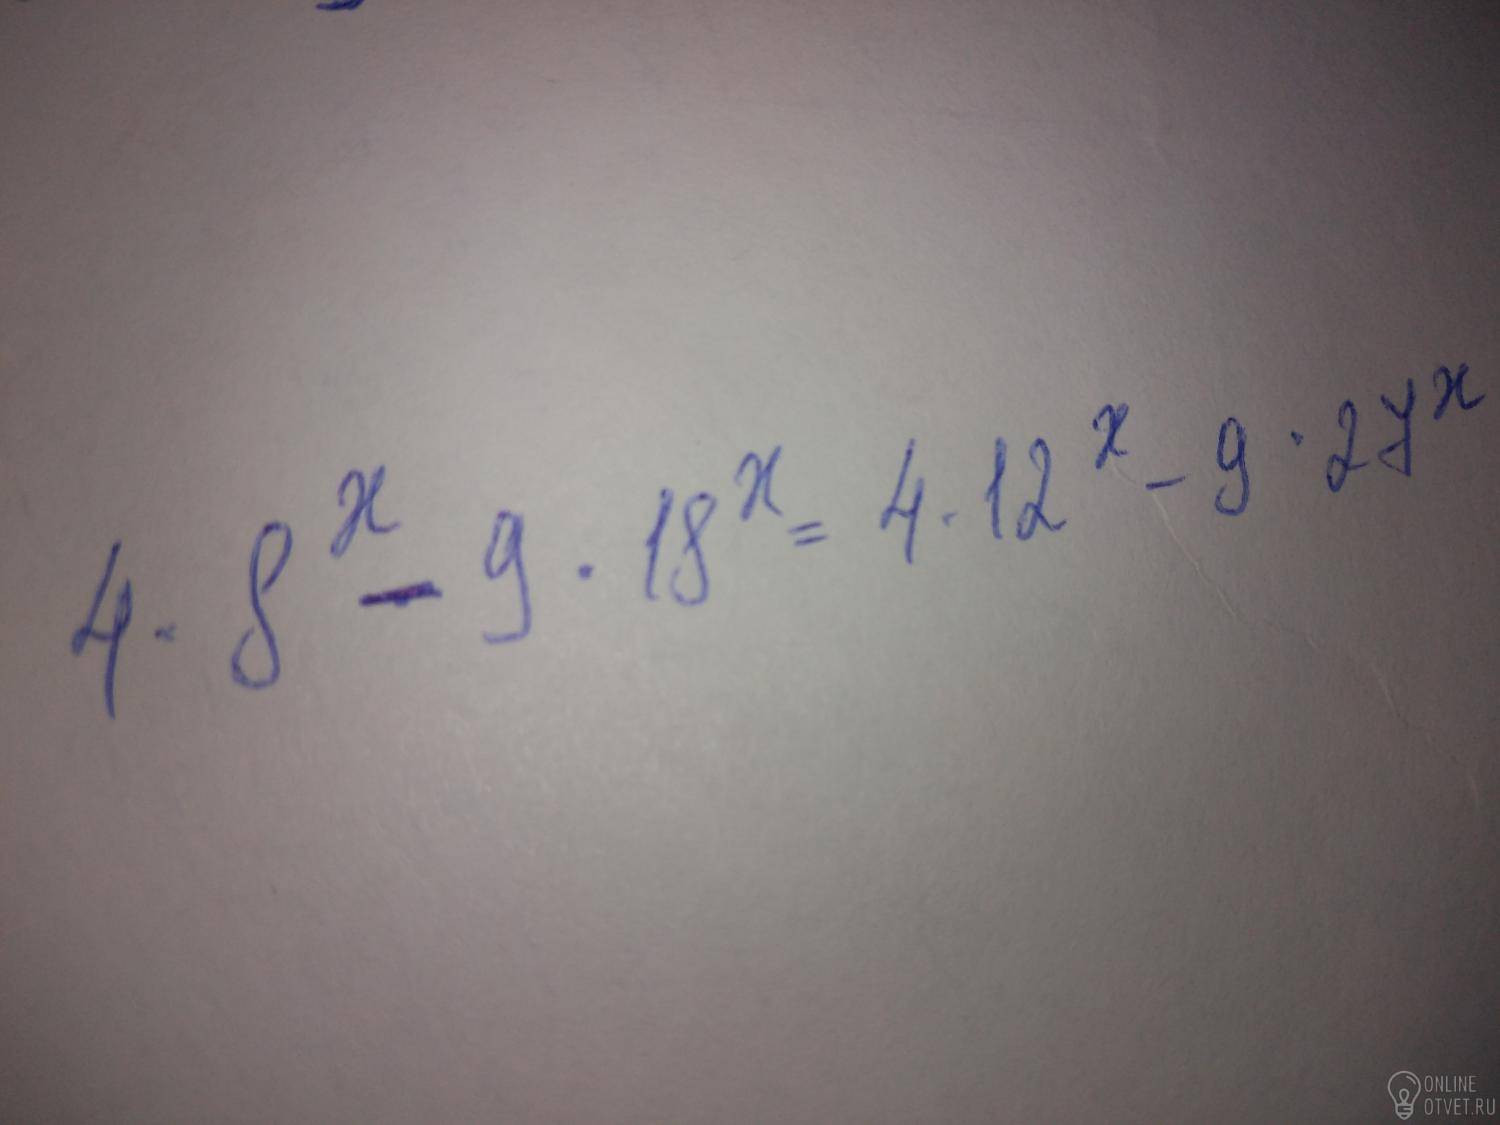 4 · 8ˣ - 9 · 18ˣ = 4 · 12ˣ - 9 · 27ˣ
ONLINE
OTVET.RU